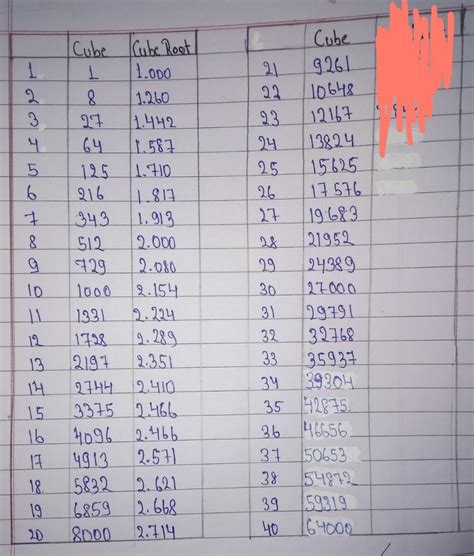 Cube Cube Root Cube
1 1 1.000 21 9261
2 8 1.260 22 10648
3 27 1.442 23 12167
4 64 1.587 24 13824
5 125 1.710 25 15625
6 216 1.817 26 17576
7 343 1.913 27 19683
8 512 2.000 28 21952
9 729 2.080 29 24389
10 1000 2.154 30 27000
11 1331 2.224 31 29791
12 1728 2.289 32 32768
13 2197 2.351 33 35937
14 2744 2.410 34 39304
15 3375 2.466 35 42875
16 4096 2.466 36 46656
17 4913 2.571 37 50653
18. 5832 2.621 38 54872
19 6859 2.668 39 59319
20 8000 2.714 40 64000